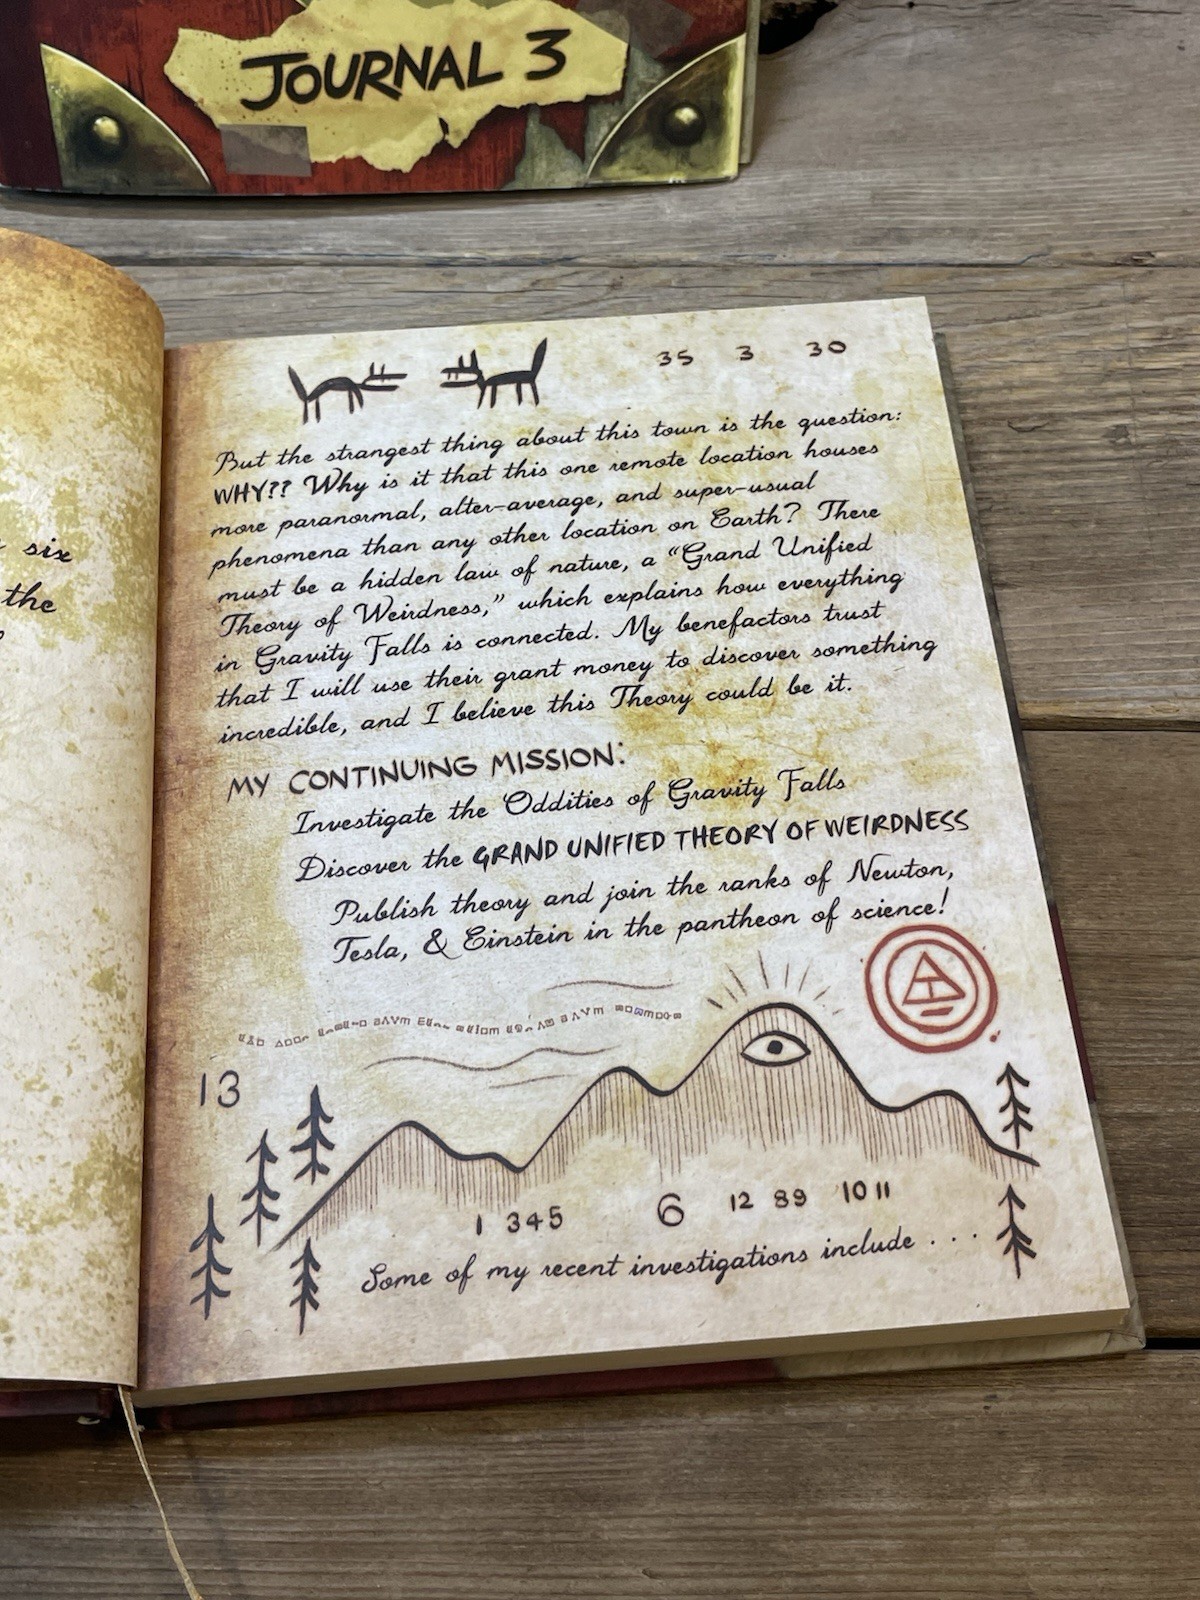 JOURNAL 3
six
the
35 3 30
But the strangest thing about this town is the question:
WHY?? Why is it that this one remote location houses
more paranormal, alter-average, and super-usual
phenomena than any other location on Earth? There
must be a hidden law of nature, a “Grand Unified
Theory of Weirdness,” which explains how everything
in Gravity Falls is connected. My benefactors trust
that I will use their grant money to discover something
incredible, and I believe this Theory could be it.
MY CONTINUING MISSION:
Investigate the Oddities of Gravity Falls
Discover the GRAND UNIFIED THEORY OF WEIRDNESS
Publish theory and join the ranks of Newton,
Tesla, & Einstein in the pantheon of science!
13
1 345 6 12 89 10 11
Some of my recent investigations include . . .